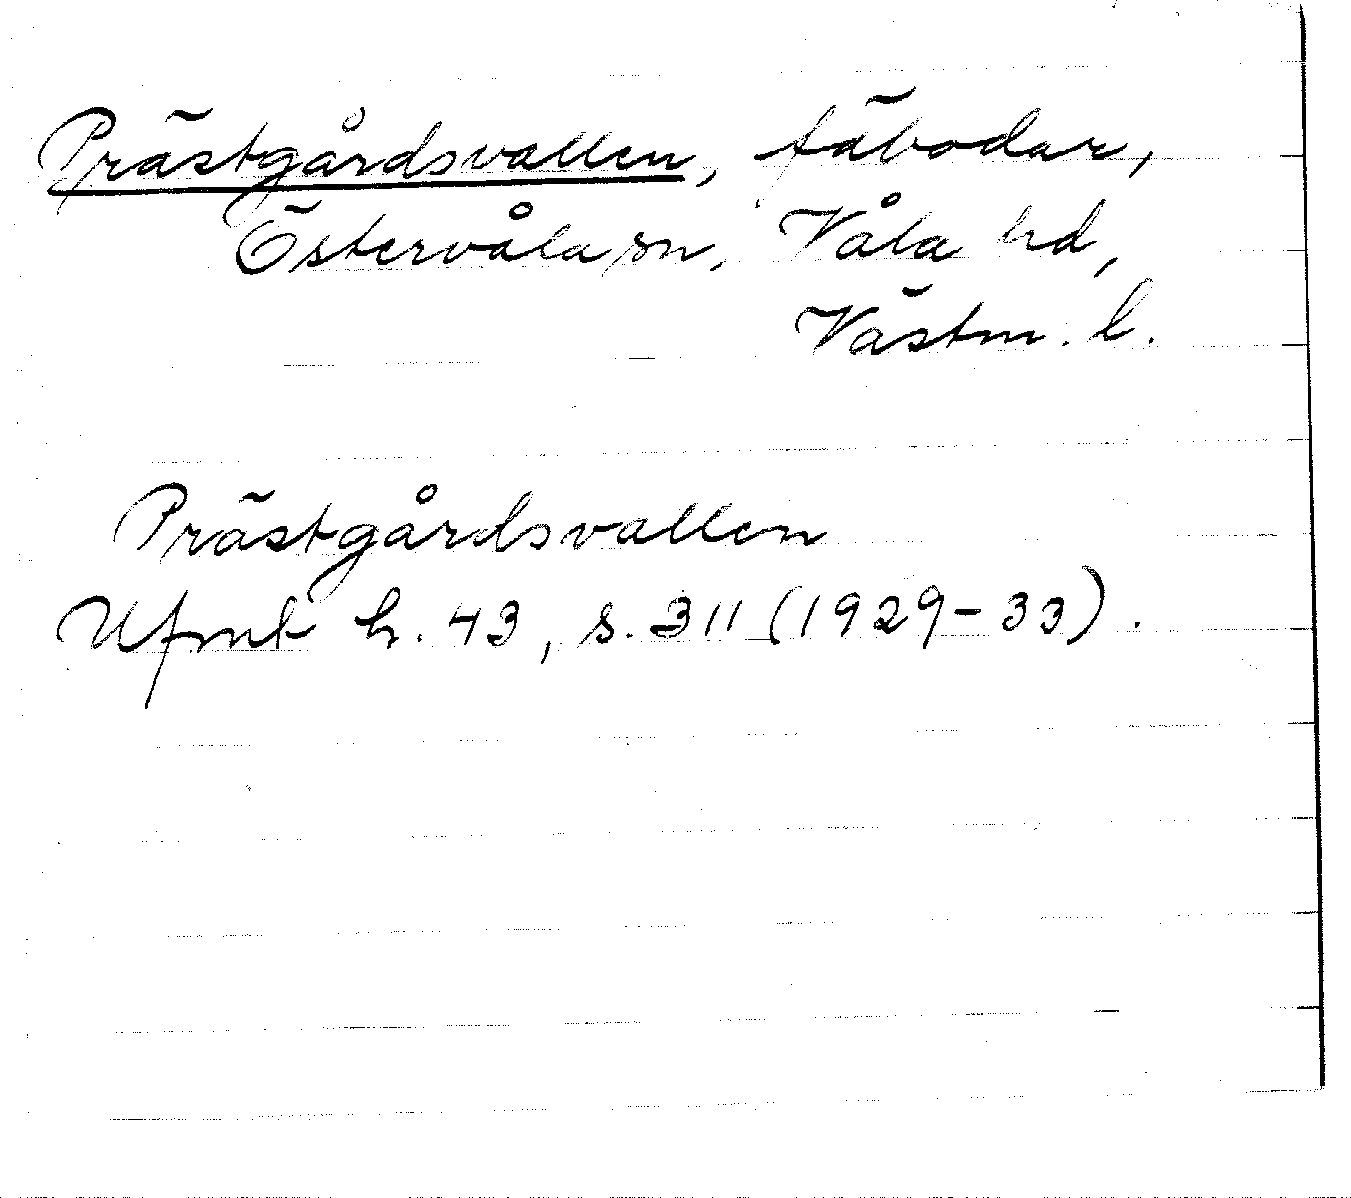 Prästgårdsvallen, fäbodar,
Östervåla sn, Våla hd,
Västm. l.
Prästgårdsvallen
Ufmt h. 43, s. 311 (1929-33).